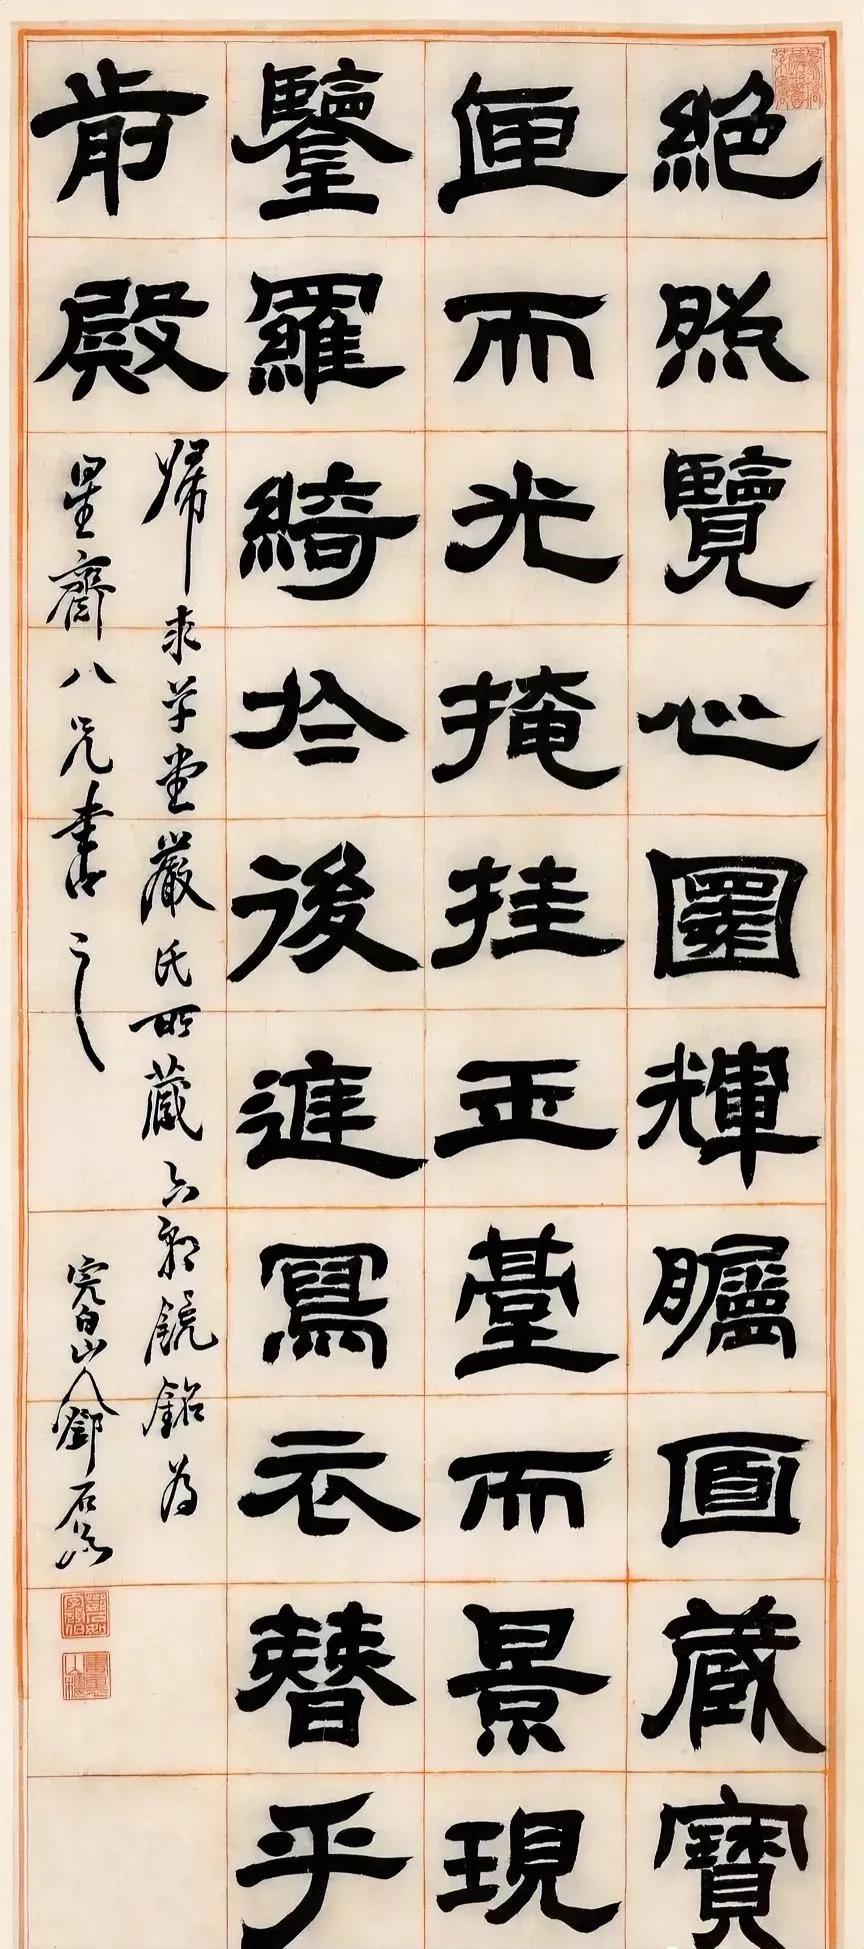 絕照覽心圜輝矚面藏寶
匣而光掩挂玉臺而景現
鑒羅綺於後進寫衣簪乎
前殿
歸求草堂嚴氏所藏六朝鏡銘為
星齋八兄書之
完白山人鄧石如